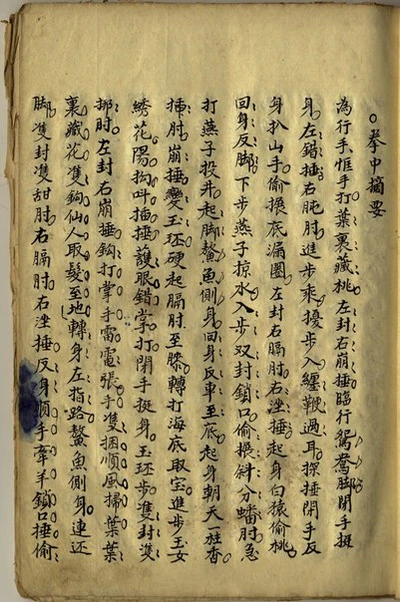 ○拳中摘要
為行手惟手打葉裏藏桃左封右崩捶臨行鴛鴦脚閉手挺
身左錯捶右肫肘進步乘擾步入纏鞭過耳探捶閉手反
身扒山手偷摄底漏圈左封右膈肘右洼捶起身白猿偷桃
回身反脚下步燕子掠水入步双封鎖口偷摄斜分蟠肘急
打燕子投井起脚鰲魚側身回身反車至底起身朝天一炷香
捶肘崩捶變玉环硬起膈肘至膝轉打海底取宝進步玉女
綉花陽抅吽描捶護眼錯掌打閉手挺身玉环步雙封雙
挪肘左封右崩捶鈎打掌手雷電張手雙捆順風掃葉葉
裏藏花雙鈎仙人取髮至地轉身左指路鰲魚側身連还
脚雙封雙甜肘右膈肘右洼捶反身順手牽羊鎖口捶偷